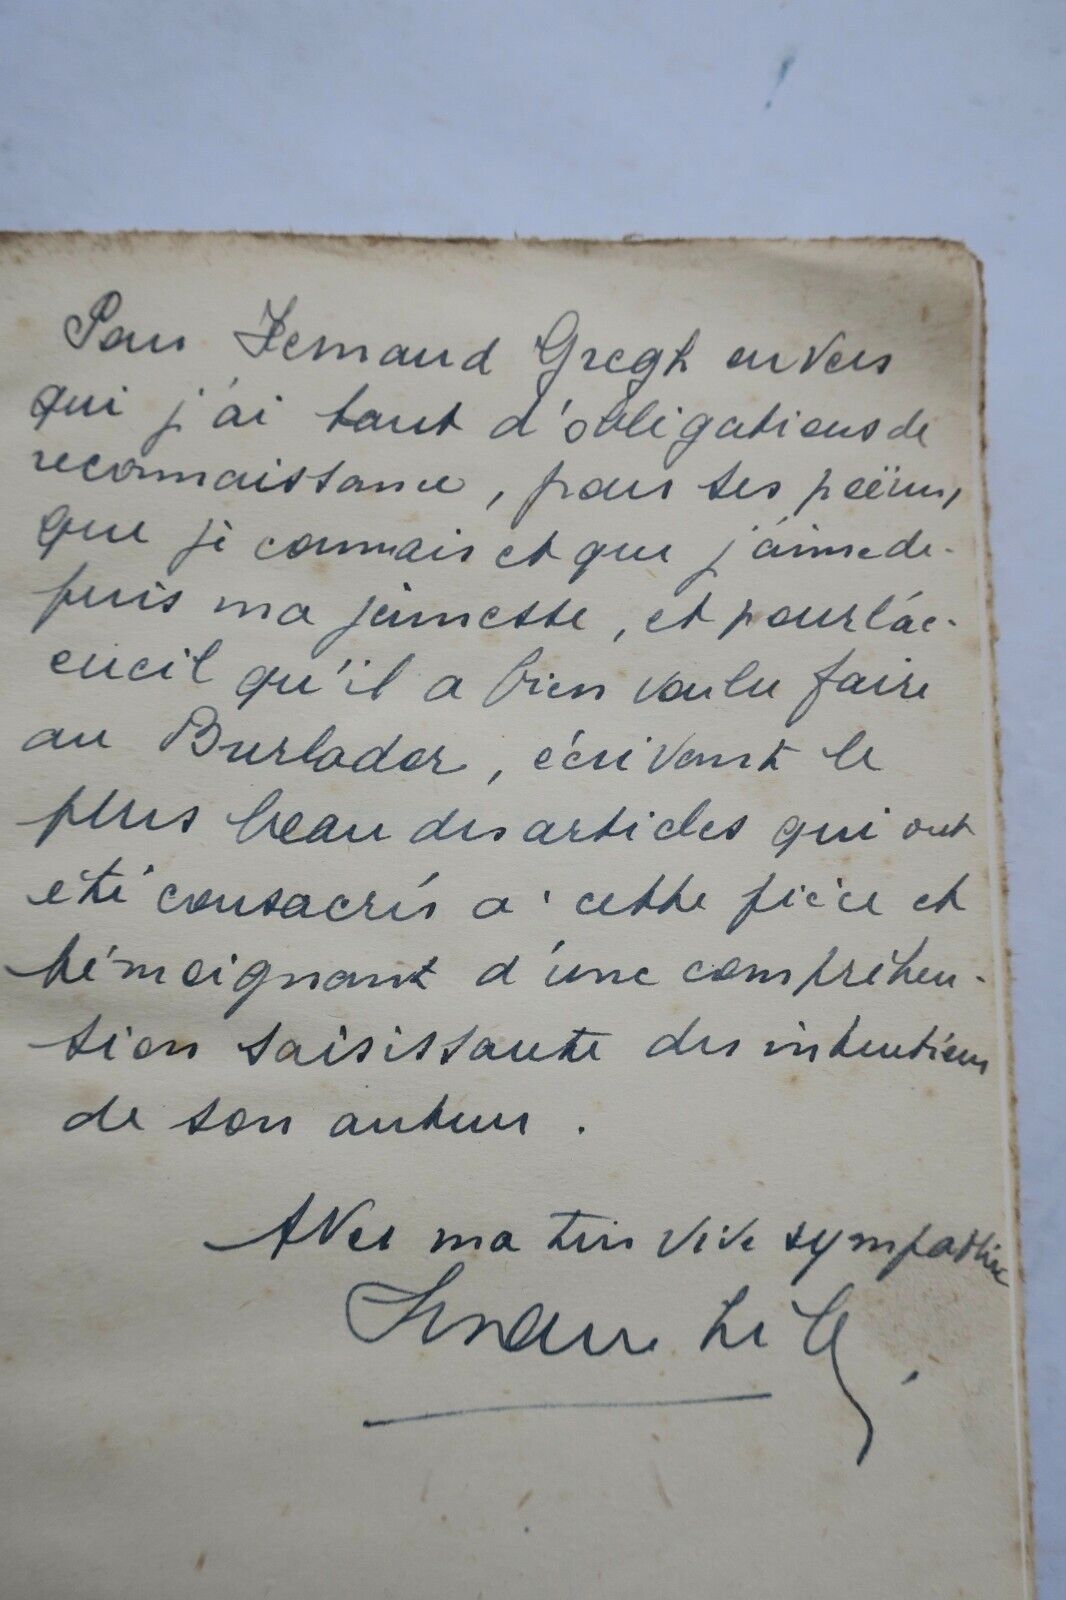 Pour Fernand Gregh envers
qui j'ai tant d'obligations de
reconnaissance, pour ses poëmes,
que je connais et que j'aime de-
puis ma jeunesse, et pour l'ac-
cueil qu'il a bien voulu faire
au Burlador, écrivant le
plus beau des articles qui ont
été consacrés à cette pièce et
témoignant d'une compréhen-
sion saisissante des intentions
de son auteur.
Avec ma très vive sympathie